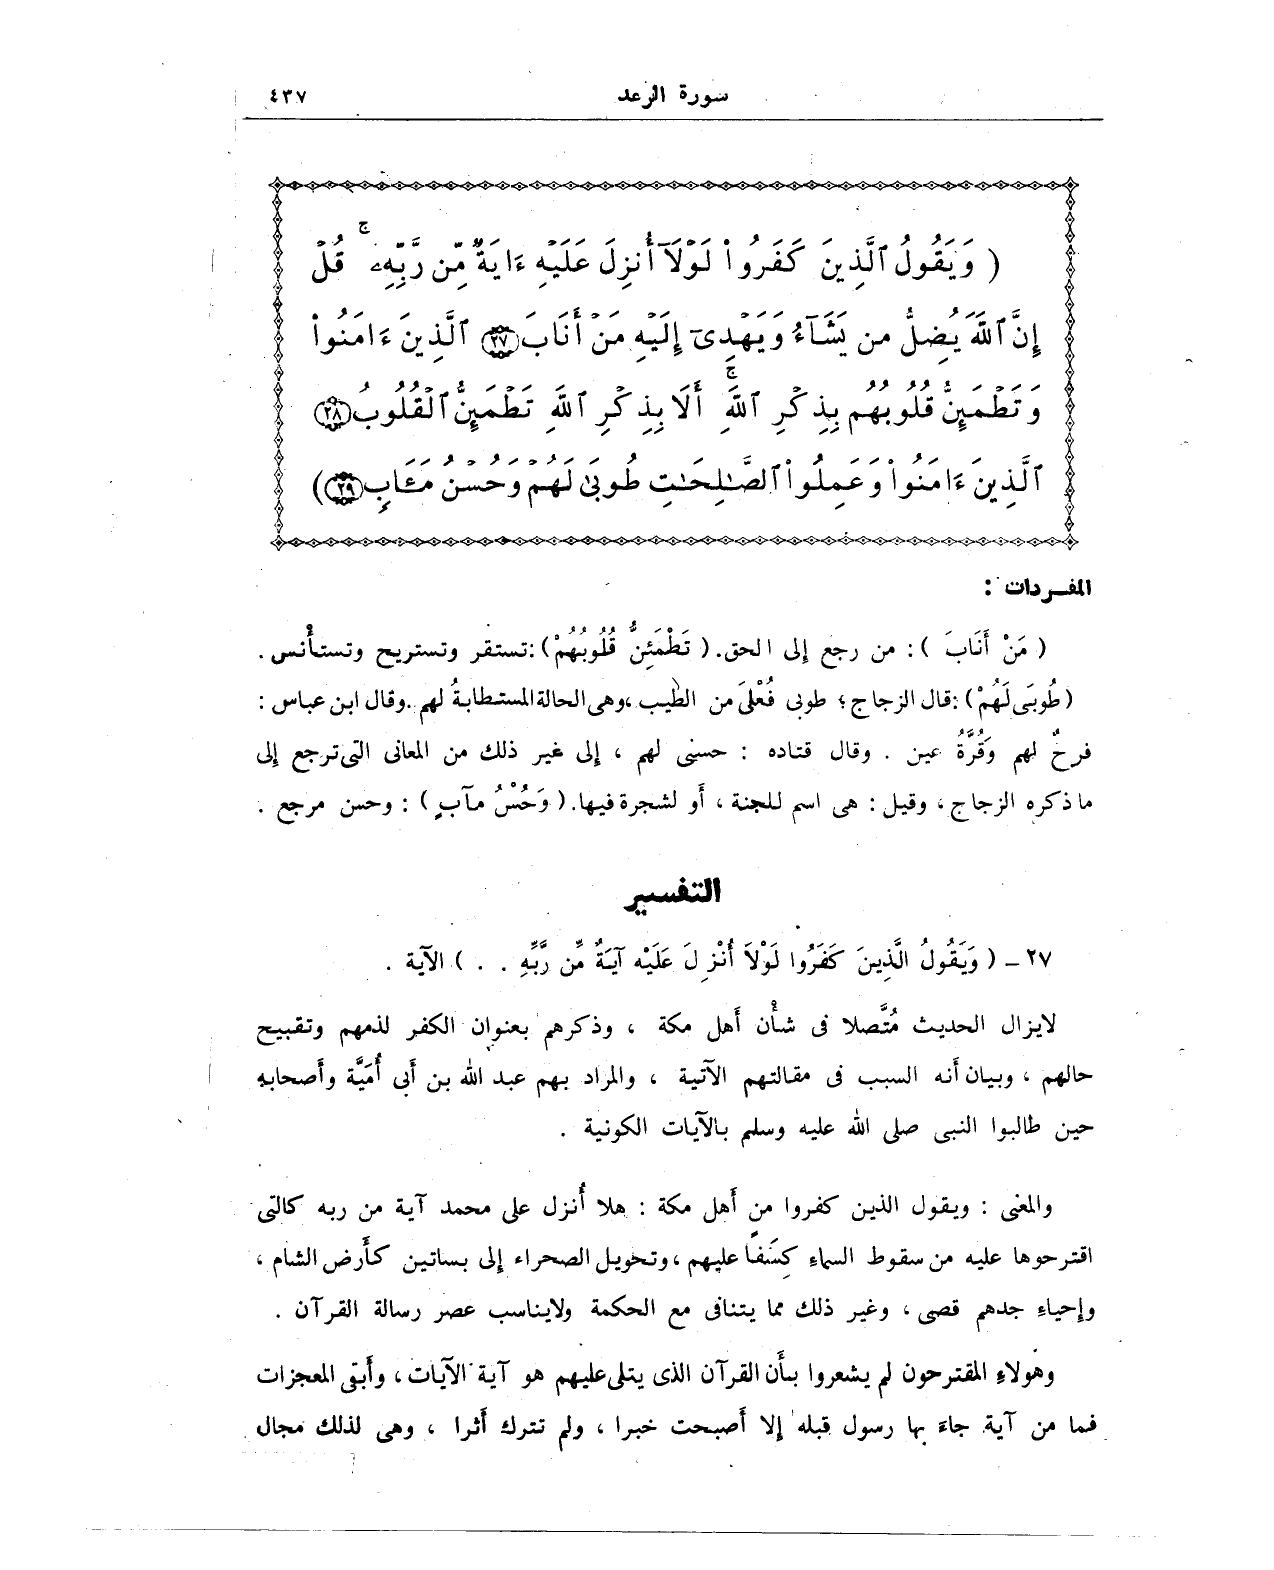 سورة الرعد ٤٣٧
( وَيَقُولُ ٱلَّذِينَ كَفَرُوا۟ لَوْلَآ أُنزِلَ عَلَيْهِ ءَايَةٌ مِّن رَّبِّهِۦ ۚ قُلْ
إِنَّ ٱللَّهَ يُضِلُّ مَن يَشَآءُ وَيَهْدِىٓ إِلَيْهِ مَنْ أَنَابَ ٢٧ ٱلَّذِينَ ءَامَنُوا۟
وَتَطْمَئِنُّ قُلُوبُهُم بِذِكْرِ ٱللَّهِ ۚ أَلَا بِذِكْرِ ٱللَّهِ تَطْمَئِنُّ ٱلْقُلُوبُ ٢٨
ٱلَّذِينَ ءَامَنُوا۟ وَعَمِلُوا۟ ٱلصَّـٰلِحَـٰتِ طُوبَىٰ لَهُمْ وَحُسْنُ مَـَٔابٍ ٢٩ )
المفـردات :
( مَنْ أَنَابَ ) : من رجع إلى الحق. ( تَطْمَئِنُّ قُلُوبُهُمْ ) : تستقر وتستريح وتستأنس .
( طُوبَى لَهُمْ ) : قال الزجاج ؛ طوبى فُعْلَى من الطيب ، وهى الحالة المستطابةُ لهم . وقال ابن عباس :
فرحٌ لهم وَقُرَّةُ عين . وقال قتاده : حسنى لهم ، إلى غير ذلك من المعانى التى ترجع إلى
ما ذكره الزجاج ، وقيل : هى اسم للجنة ، أو لشجرة فيها. ( وَحُسْنُ مآبٍ ) : وحسن مرجع .
التفسير
٢٧ ـ ( وَيَقُولُ الَّذِينَ كَفَرُوا لَوْلَا أُنْزِلَ عَلَيْهِ آيَةٌ مِّن رَّبِّهِ . . ) الآية .
لايزال الحديث مُتَّصلا فى شأن أهل مكة ، وذكرهم بعنوان الكفر لذمهم وتقبيح
حالهم ، وبيان أنه السبب فى مقالتهم الآتية ، والمراد بهم عبد الله بن أبى أُمَيَّة وأصحابه
حين طالبوا النبى صلى الله عليه وسلم بالآيات الكونية .
والمعنى : ويقول الذين كفروا من أهل مكة : هلا أُنزل على محمد آية من ربه كالتى
اقترحوها عليه من سقوط السماءِ كِسَفًا عليهم ، وتحويل الصحراء إلى بساتين كأرض الشام ،
وإحياءِ جدهم قصى ، وغير ذلك مما يتنافى مع الحكمة ولايناسب عصر رسالة القرآن .
وهولاءِ المقترحون لم يشعروا بأن القرآن الذى يتلى عليهم هو آية الآيات ، وأبقى المعجزات
فما من آية جاءَ بها رسول قبله إلا أصبحت خبرا ، ولم تترك أثرا ، وهى لذلك مجال